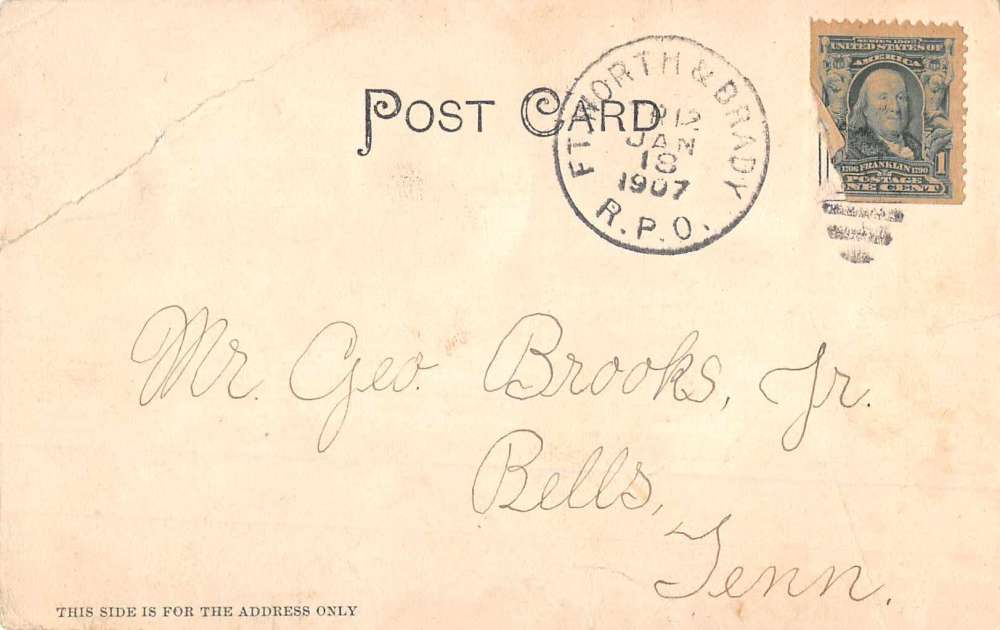 POST CARD
FT. WORTH & BRADY
JAN
18
1907
R.P.O.
SERIES 1902
UNITED STATES OF
AMERICA
1706 FRANKLIN 1790
POSTAGE 1
ONE CENT
Mr. Geo. Brooks, Jr.
Bells,
Tenn.
THIS SIDE IS FOR THE ADDRESS ONLY